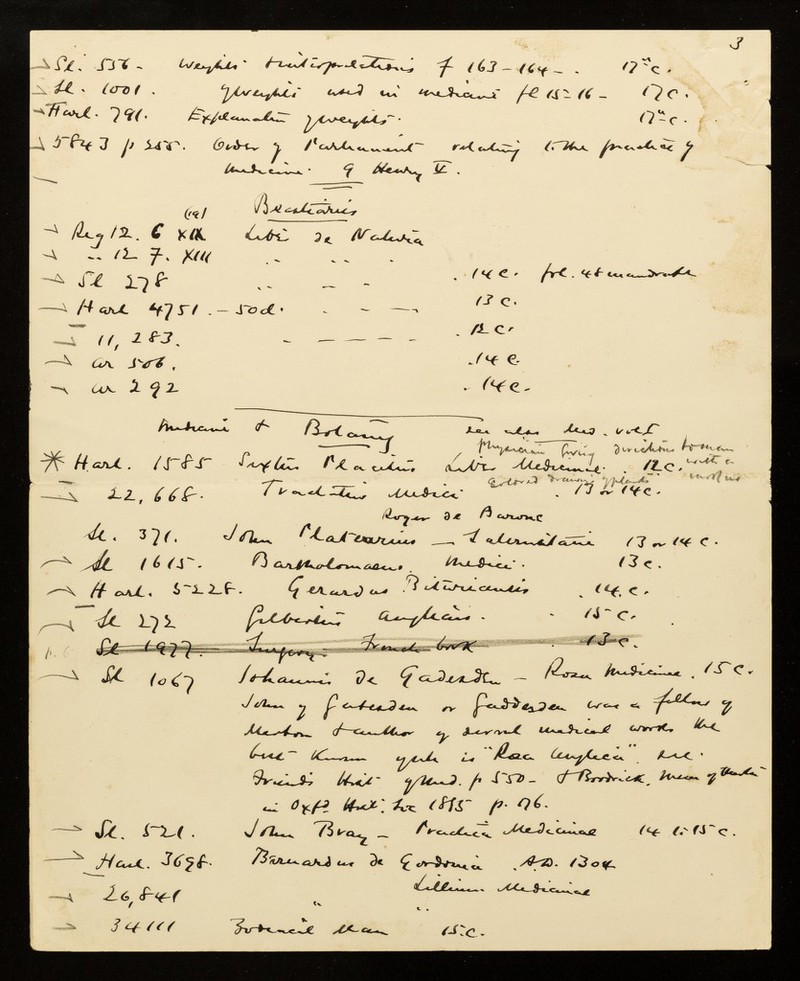 3
Sl. 556 - Weights & f 163-164 - . 17th c.
Sl. 1001 . of weights used in medicine fl 15-16 - 17 c.
Harl. 791. Explanation of weights. 17th c.
5843 p 255. Order of Parliament relating to the practice of
medicine. 9 Henry V.
Bestiaries
Reg 12. C XIX Liber De Natura
" 12 F. XIII " " "
Sl 278 " - - . 14 c. fol. 48 mandrake
Harl 4751 . - 50 d. - - - 13 c.
11, 283. - - - - - . 12 c.
ar 506. . 14 c.
ar 292 . 14 c.
Medicine & Botany see also
physician giving directions to man
with a
Harl. 1585 Sextus Placitus Liber Medicinae . 12 c.
colored drawings of plants
22, 668. Medici . 13 or 14 c.
Roger de Barone
Sl. 371. John Platearius — Salernitanus 13 or 14 c.
Sl 1615. Bartholomaeus Medici . 13 c.
Harl. 5228. Gerardus Bituricensis . 14. c.
Sl 272 Gilbertus Anglicus . . 15 c.
Sl 1977. Surgery. French book . 13 c.
Sl 1067 Johannis De Gadesden - Rosa Medicinae . 15 c.
John of Gatesden or Gaddesden was a fellow of
Merton & author of several medical works the
best known of which is "Rosa Anglica". see
Friends Hist of Med. p 550 - & Brodrick. Mem of Merton
in Oxfd Hist. Soc 1885 p. 176.
Sl. 521. John Bray - Practica Medicinae 14 to 15 c.
Harl. 3698. Bernardus De Gordonia . A.D. 1304
26,841 " Lillium Medicinae
34111 Man 15.c.